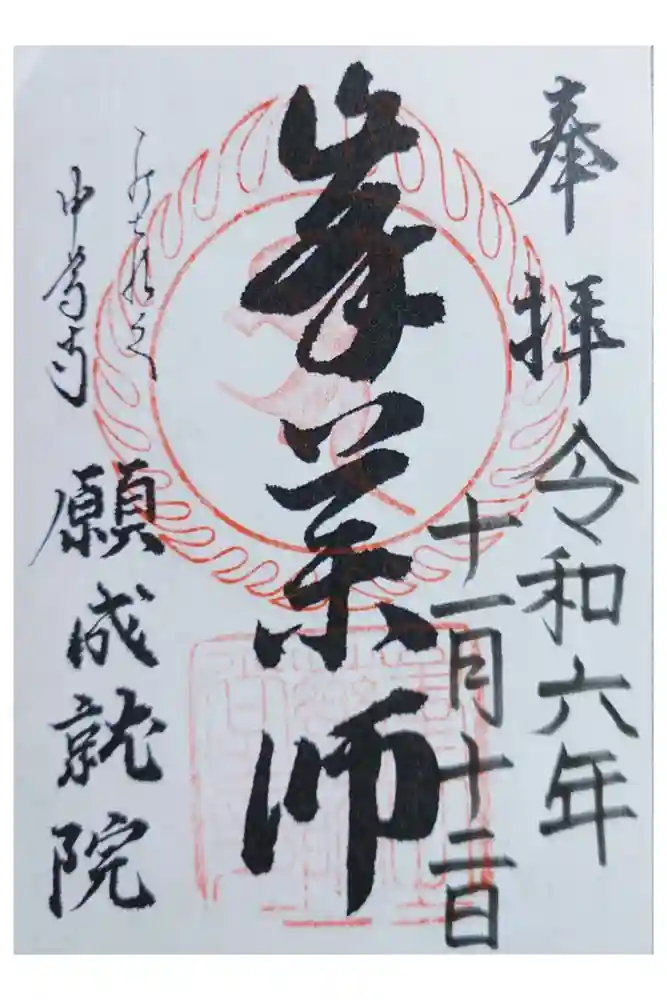 奉拝 令和六年
十一月十二日
峯薬師
中尊寺 願成就院